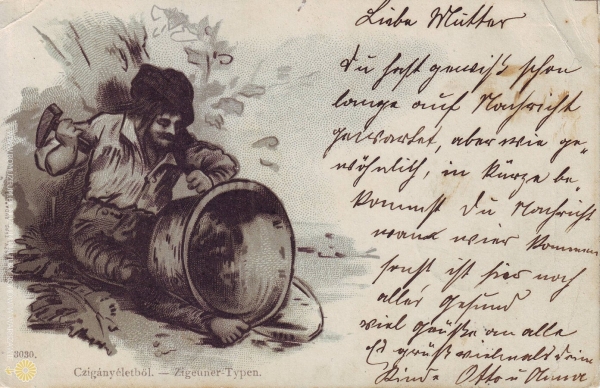 Liebe Mutter
Du hast gewiß schon
lange auf Nachricht
gewartet, aber wie ge„
wöhnlich, in kürze be„
kommst Du Nachricht
wann wier kommen
sonst ist hier noch
alles gesund
viel grüße an alle
Es grüßt vielmals deine
Kinder Otto u Anna
3030.
Czigányéletböl. — Zigeuner-Typen.